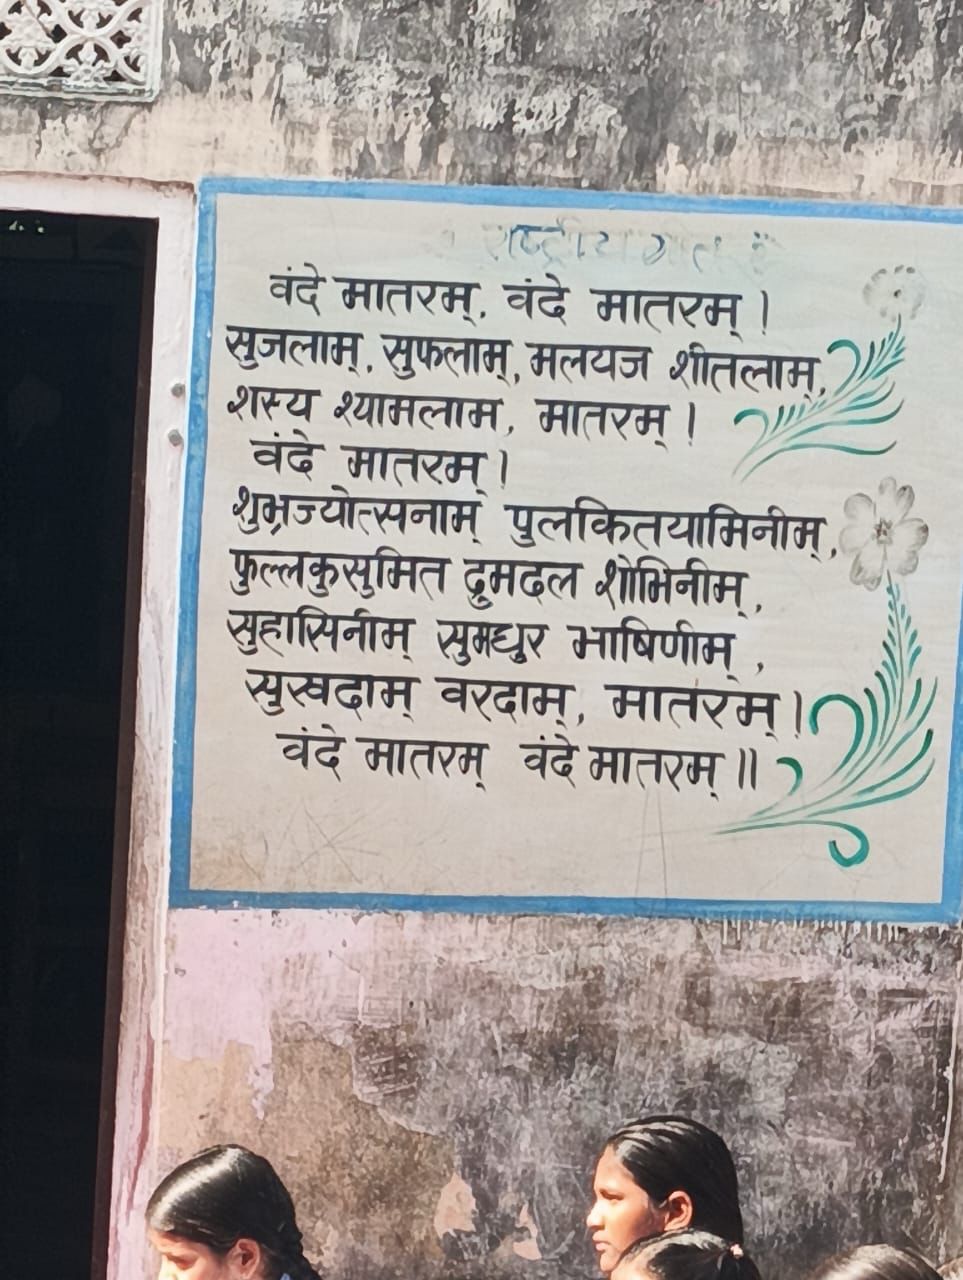 राष्ट्रीय गीत
वंदे मातरम्, वंदे मातरम् ।
सुजलाम्, सुफलाम्, मलयज शीतलाम्,
शस्य श्यामलाम, मातरम् ।
वंदे मातरम् ।
शुभ्रज्योत्सनाम् पुलकितयामिनीम्,
फुल्लकुसुमित द्रुमदल शोभिनीम्,
सुहासिनीम् सुमधुर भाषिणीम्,
सुखदाम् वरदाम्, मातरम् ।
वंदे मातरम् वंदे मातरम् ॥